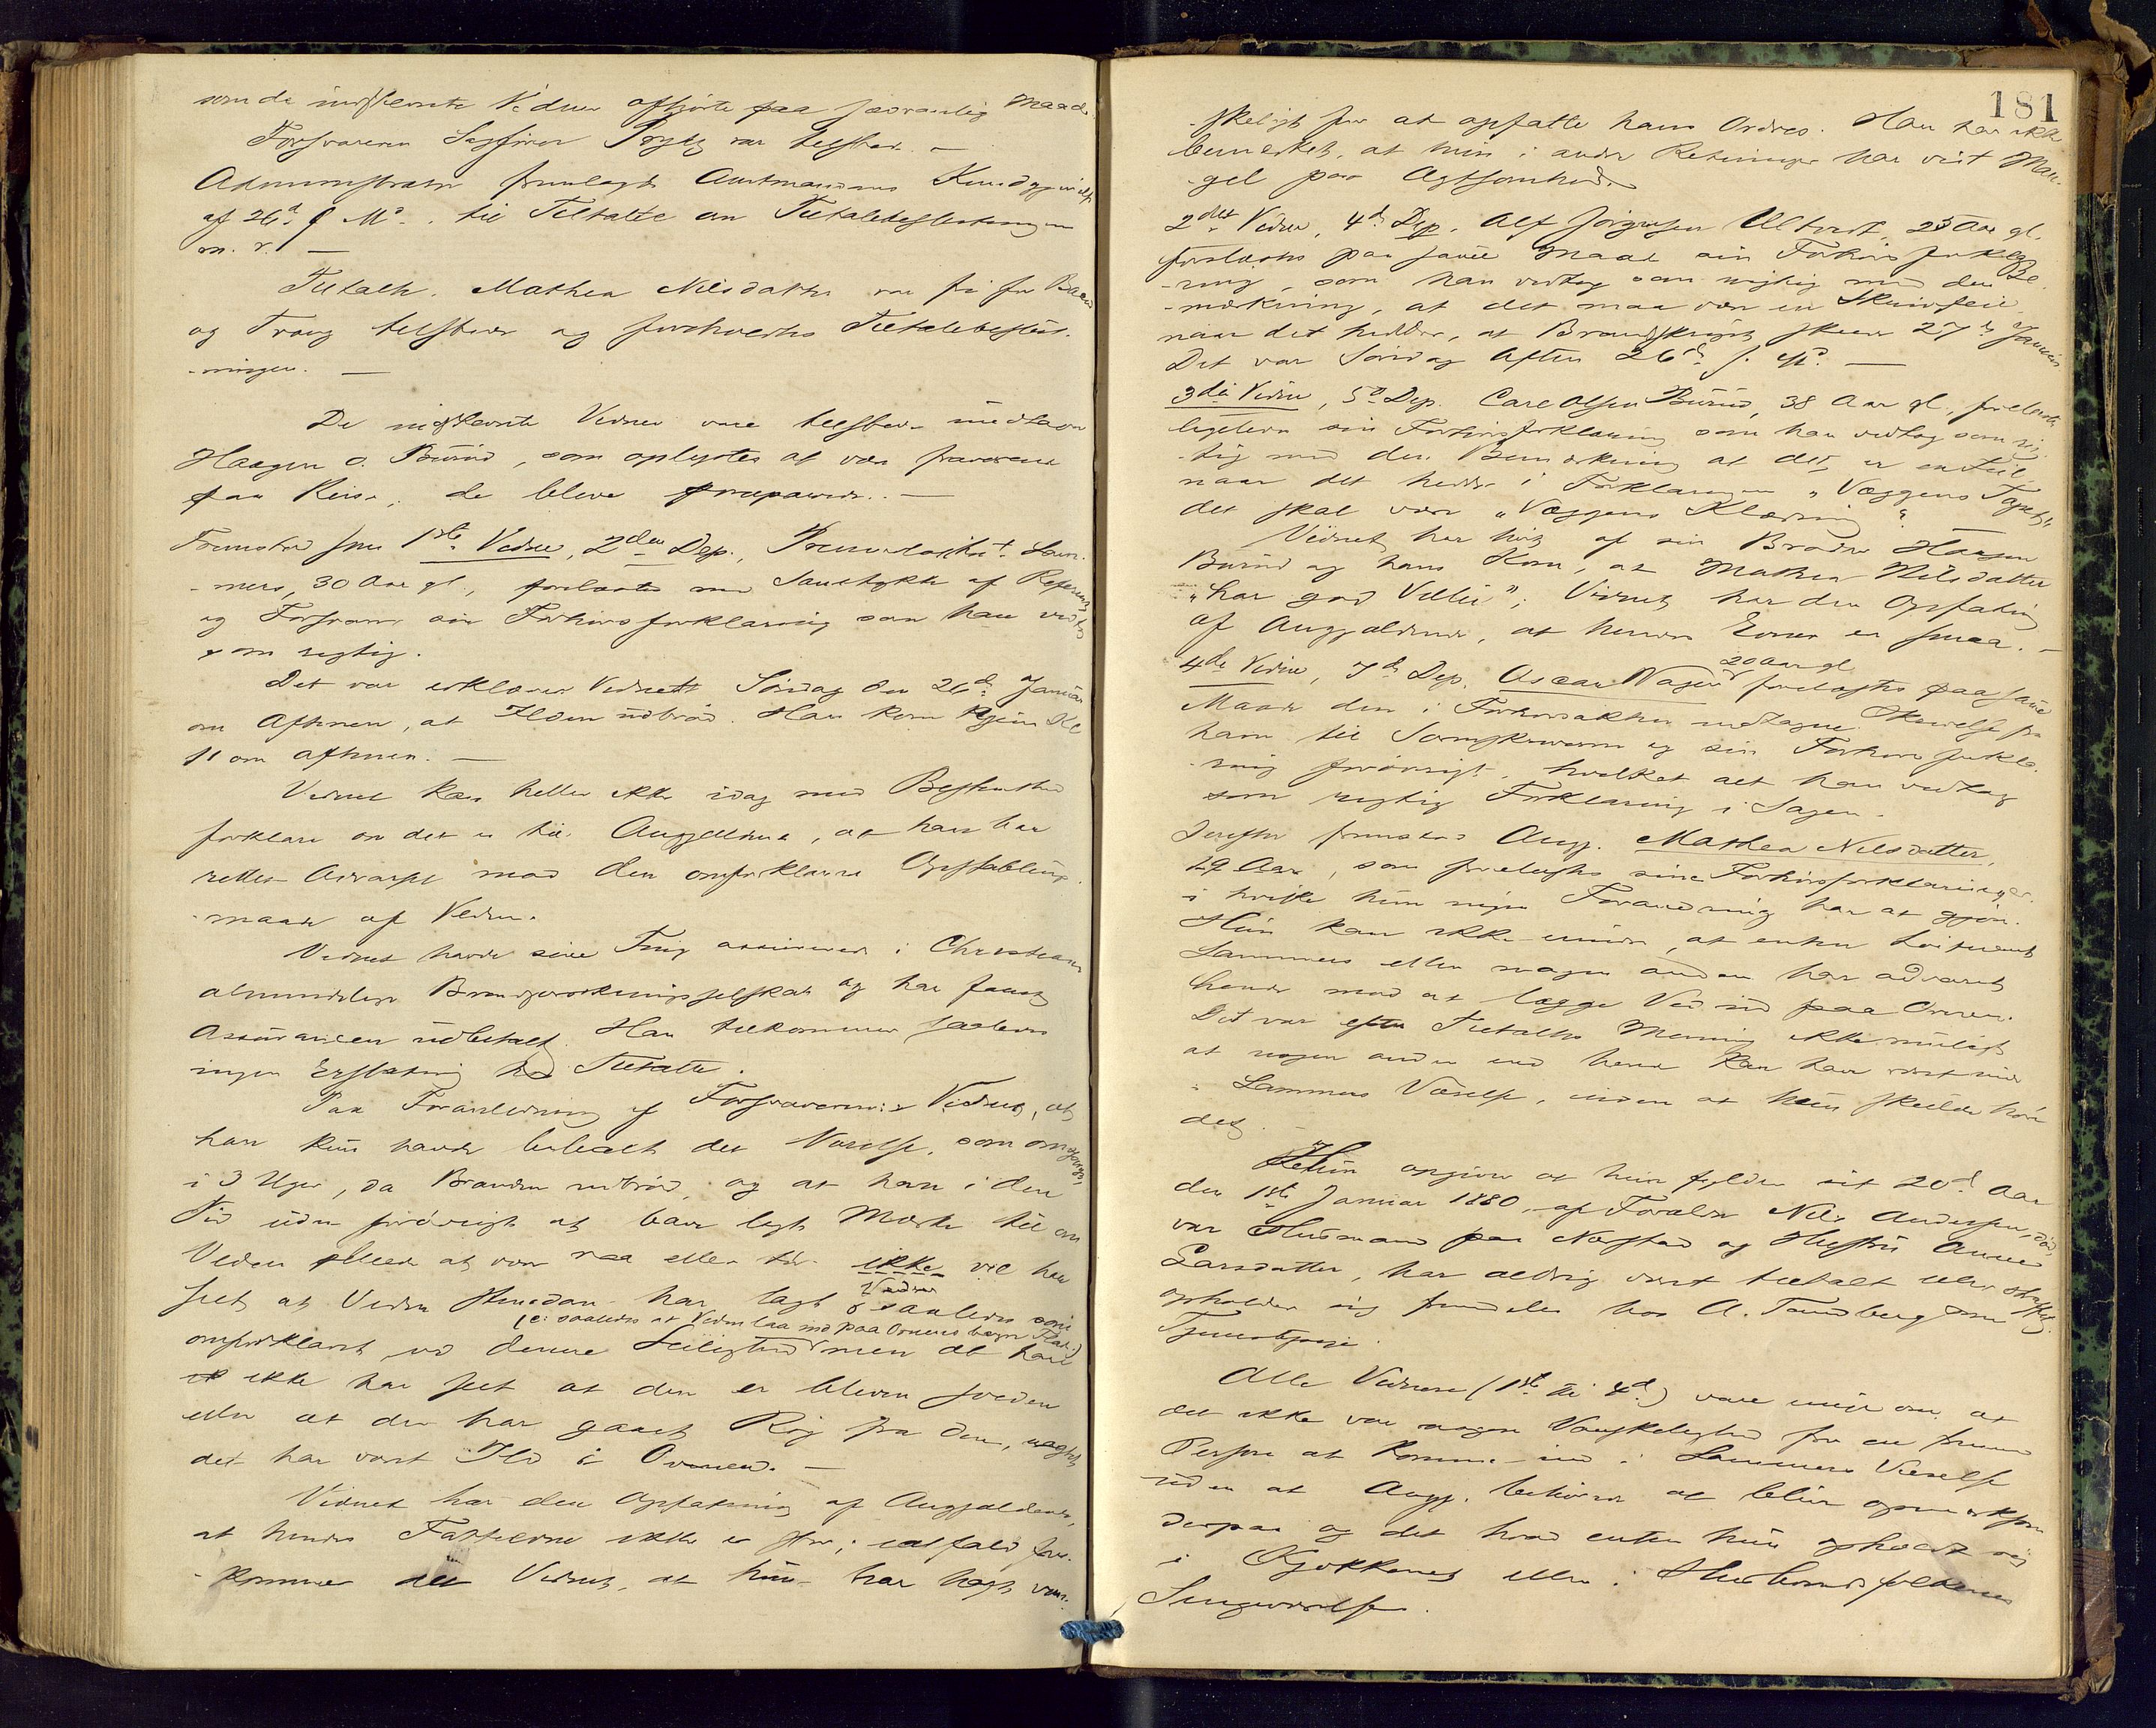 som de indstevnte Vidner afhjørte paa sædvanlig Maade.
Forsvareren Sagfører Prytz var tilstede. —
Administrator fremlagde Amtmandens Kundgjørelse
af 26d. f. Md. til Tiltalte om Tiltalebeslutningen
m. v. —
Tiltalte, Mathea Nilsdatter var fri for Baand
og Tvang tilstede og forelæstes Tiltalebeslut-
-ningen. —
De indstevnte Vidner vare tilstede undtagen
Haagen O. Burud, som oplystes at være fraværende
paa Reise; de bleve præparerede. —
Fremstod som 1ste Vidne, 2den Dep., Premierløitnt. Lam-
-mers, 30 Aar gl., forelæstes med Samtykke af Referent
og Forsvarer sin Forhørsforklaring som han vedtog
som rigtig.
Det var erklærer Vidnet Søndag den 26d. Januar
om Aftenen, at Ilden udbrød. Han kom hjem Kl
11 om aftenen. —
Vidnet kan heller ikke idag med Bestemthed
forklare om det er til Angjældende, at han har
rettet Advarsel mod den omforklarede Opstablings-
-maade af Veden.
Vidnet havde sine Ting assurerede i Christiania
almindelige Brandforsikringsselskab og har faaet
Assurancen udbetalt. Han tilkommer saaledes
ingen Erstatning hos Tiltalte.
Paa Foranledning af Forsvareren Vidnet, at
han kun havde beboet det Værelse, som omspørges,
i 3 Uger, da Branden udbrød, og at han i den
Tid uden forøvrigt at have lagt Mærke til om
Veden pleiede at være raa eller tør ikke vil have
seet at Veden
Veden
saaledes som
(ɔ: saaledes at Veden laa ind paa Ovnens bagre Plade)
omforklaret, ved denne Leilighed men at han
ikke har seet at den er bleven sveden
eller at der har gaaet Røg fra den, uagtet
det har været Ild i Ovnen. —
Vidnet har den Opfatning af Angjældende,
at hendes Fatteevne ikke er stor; ialfald fore-
-kommer det Vidnet, at hun har havt van-
181
-skeligt for at opfatte hans Ordres. Han har ikke
bemærket, at hun i andre Retninger har vist Man-
-gel paa Agtsomhed.
2det Vidne, 4de Dep. Alf Jørgensen 23 Aar gl.
forelæstes paa samme Maade sin Forhørsforkla-
-ring, som han vedtog som rigtig med den Be-
-mærkning, at det maa være en Skrivfeil
naar det hedder, at Brandskaden skede 27de Januar
Det var Søndag Aften 26d. s. Md. —
3die Vidne, 5te Dep. Carl Olsen Burud, 38 Aar gl., forelæstes
ligeledes sin Forhørsforklaring som han vedtog som rig-
-tig med den Bemærkning at det er en Feil,
naar det hedder i Forklaringen "Væggens Tapet"
det skal være "Væggens Klædning".
Vidnet har hørt af sin Broder Haagen
Burud og hans Kone, at Mathea Nilsdatter
"har god Villie"; Vidnet har den Opfatning
af Angjældende, at hendes Evner er smaa. —
20 Aar gl
4de Vidne, 7de Dep. Oscar Wager forelæstes paa samme
Maade den i Forhørsakten indtagne Skrivelse fra
ham til Sorenskriveren og sin Forhørsforkla-
-ring forøvrigt, hvilket alt han vedtog
som rigtig Forklaring i Sagen.
Derefter fremstod Angj. Mathea Nilsdatter,
19 Aar, som forelæstes sine Forhørsforklaringer
i hvilke hun ingen Forandring har at gjøre.
Hun kan ikke mindes, at enten Løitnant
Lammers eller nogen anden har advaret
hende mod at lægge Ved ind paa Ovnen.
Det var efter Tiltaltes Mening ikke muligt
at nogen anden end hende kan have været inde
i Lammers Værelse, uden at hun skulde høre
det. —
Hun opgiver at hun fyldte sit 20d. Aar
den 1ste Januar 1880, af Forældre Nils Andersen, død,
var Husmand paa Næstad og Hustru Anne
Larsdatter, har aldrig været tiltalt eller straffet,
opholder sig fremdeles hos A. Tandberg som
Tjenestepige.
Alle Vidnerne (1ste til 4de) vare enige om at
det ikke var nogen Vanskelighed for en fremmed
Person at komme ind i Lammers Værelse
uden at Angj. behøvede at blive opmærksom
derpaa og det hvad enten hun opholdt sig
i Kjøkkenet eller i Husbondsfolkenes
Sengeværelse.